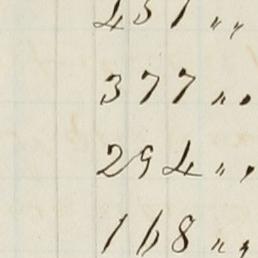 451 „ „
377 „ „
294 „ „
168 „ „